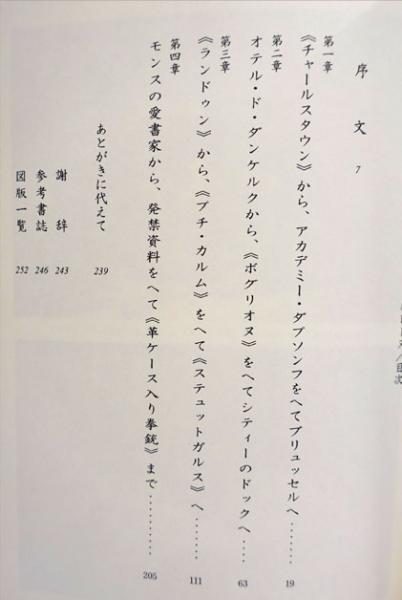 ／目次
序文 7
第一章
《チャールスタウン》から、アカデミー・ダブソンフをへてブリュッセルへ……… 19
第二章
オテル・ド・ダンケルクから、《ボグリオヌ》をへてシティーのドックへ……… 63
第三章
《ランドゥン》から、《プチ・カルム》をへて《ステュットガルス》へ……… 111
第四章
モンスの愛書家から、発禁資料をへて《革ケース入り拳銃》まで………… 205
あとがきに代えて 239
謝辞 243
参考書誌 246
図版一覧 252